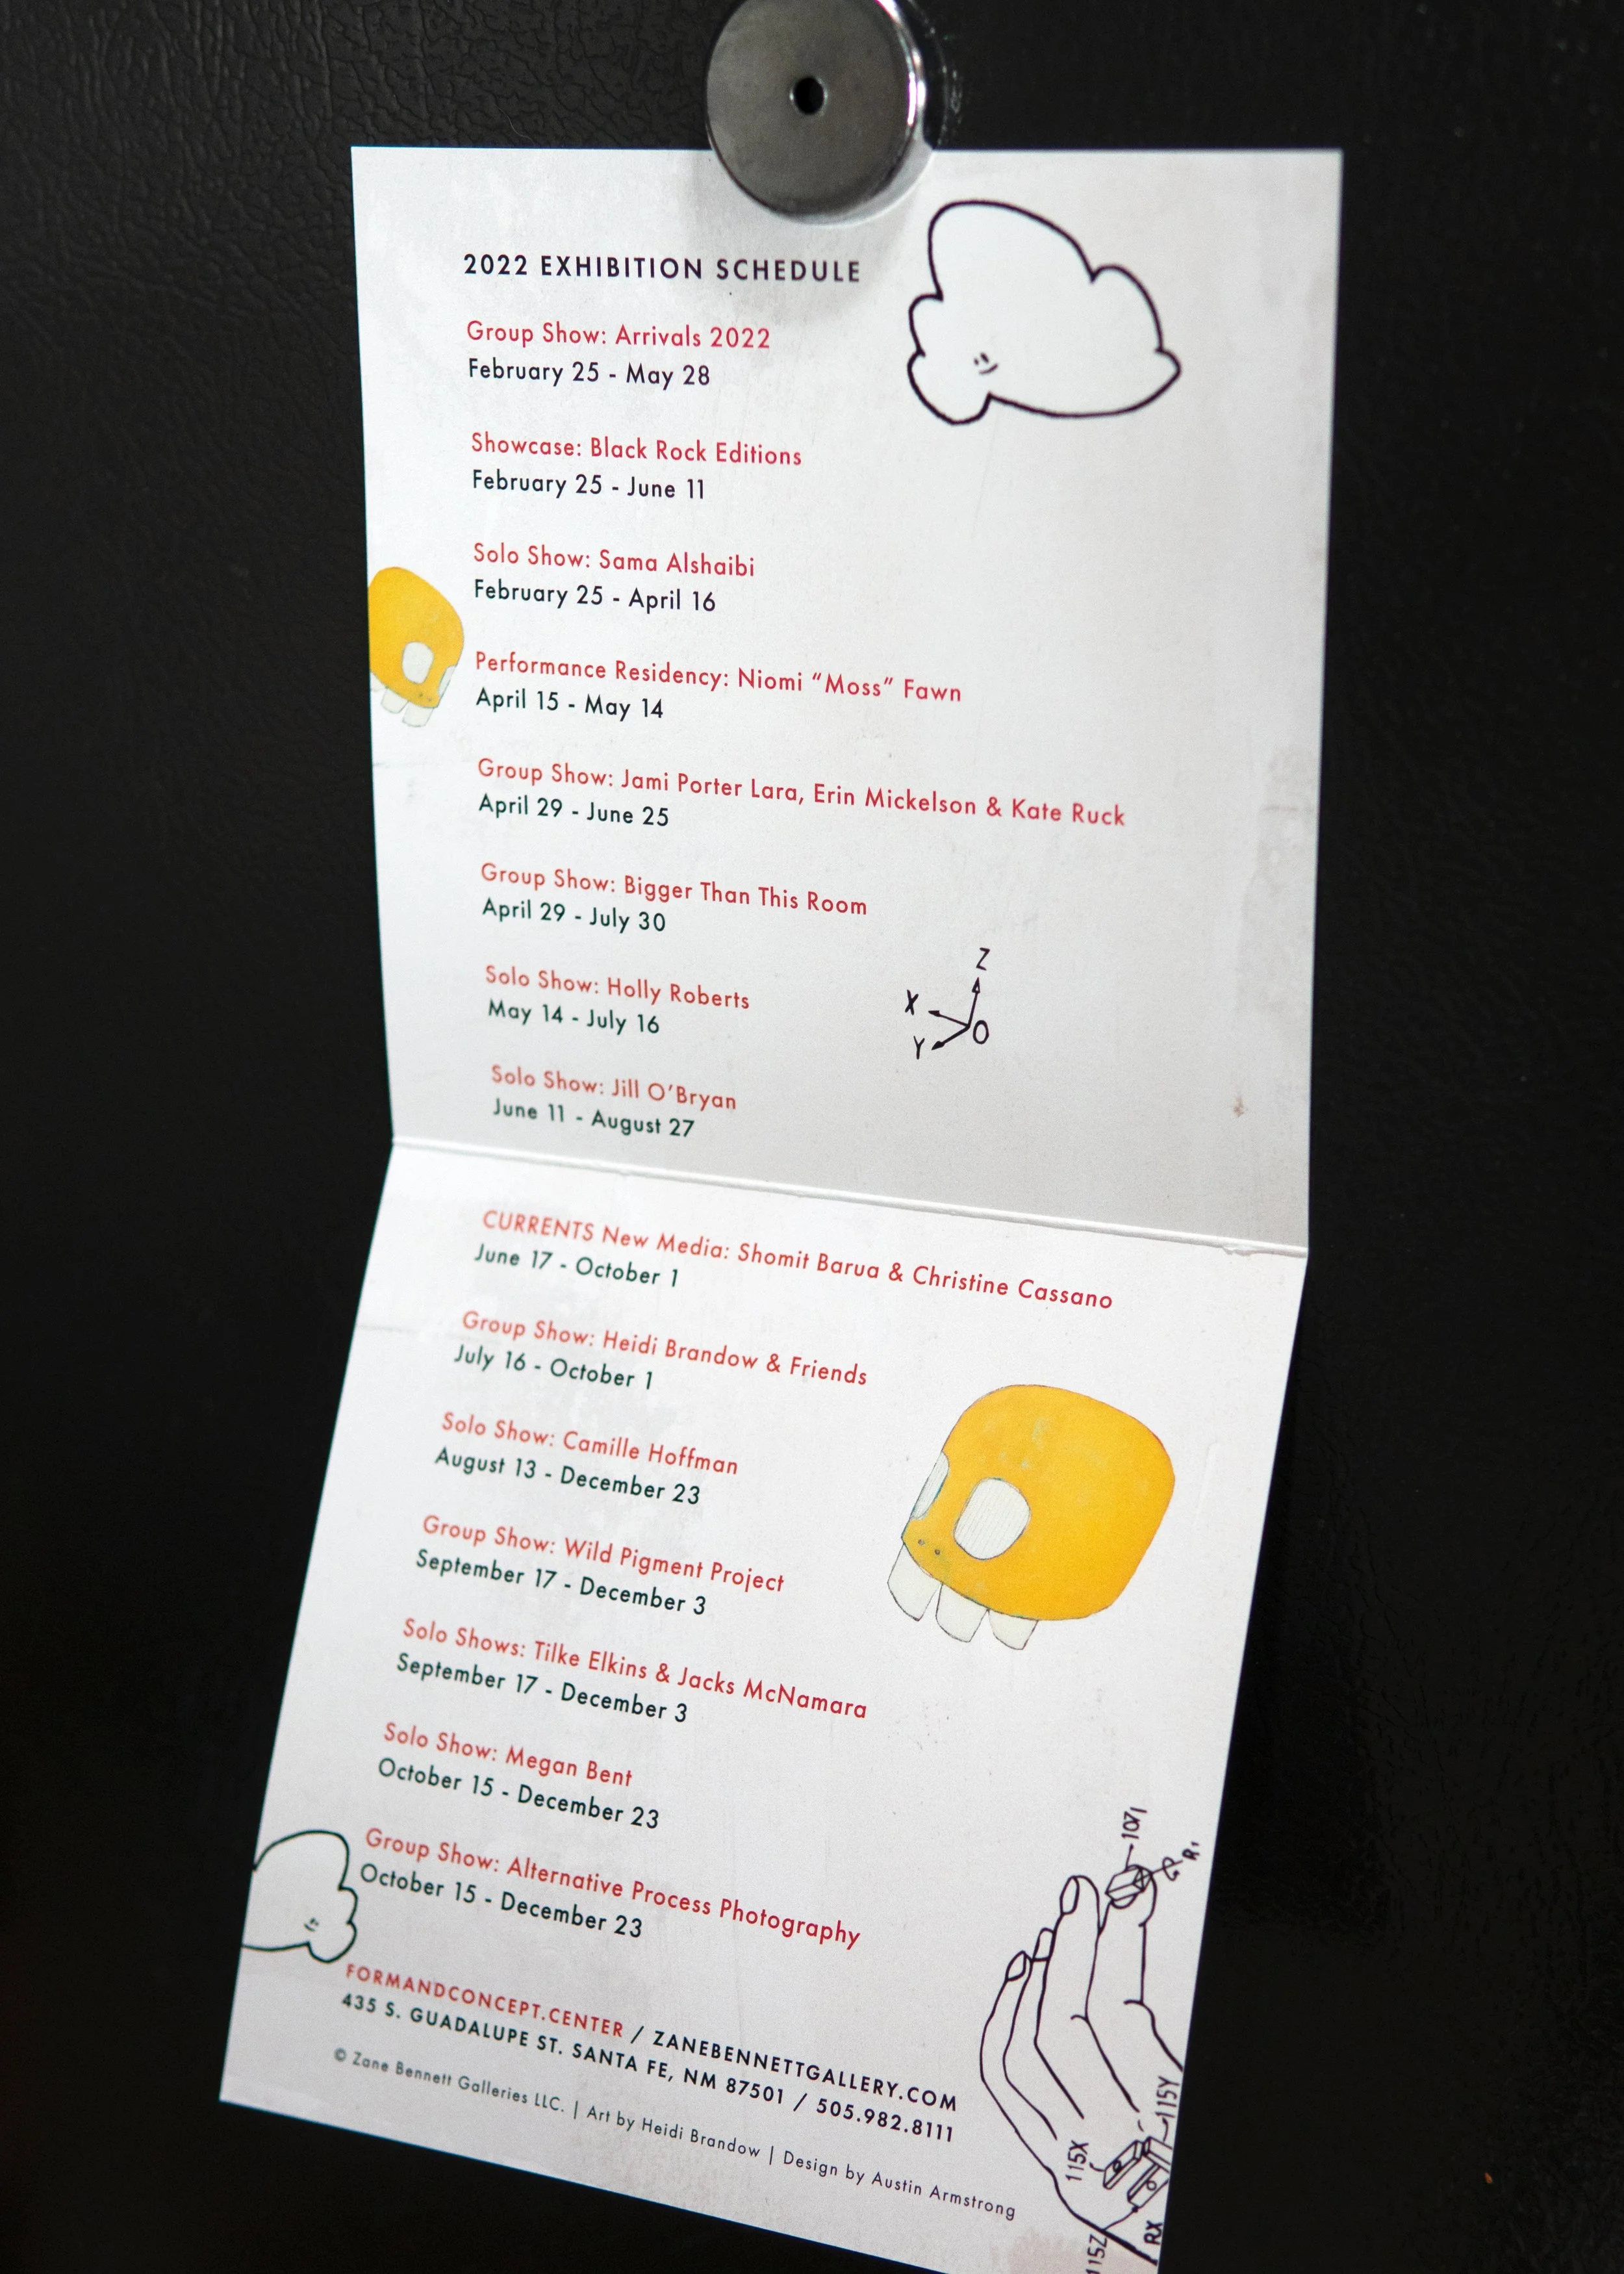 2022 EXHIBITION SCHEDULE
Group Show: Arrivals 2022
February 25 - May 28
Showcase: Black Rock Editions
February 25 - June 11
Solo Show: Sama Alshaibi
February 25 - April 16
Performance Residency: Niomi “Moss” Fawn
April 15 - May 14
Group Show: Jami Porter Lara, Erin Mickelson & Kate Ruck
April 29 - June 25
Group Show: Bigger Than This Room
April 29 - July 30
Z
X
Y
O
Solo Show: Holly Roberts
May 14 - July 16
Solo Show: Jill O’Bryan
June 11 - August 27
CURRENTS New Media: Shomit Barua & Christine Cassano
June 17 - October 1
Group Show: Heidi Brandow & Friends
July 16 - October 1
Solo Show: Camille Hoffman
August 13 - December 23
Group Show: Wild Pigment Project
September 17 - December 3
Solo Shows: Tilke Elkins & Jacks McNamara
September 17 - December 3
Solo Show: Megan Bent
October 15 - December 23
Group Show: Alternative Process Photography
October 15 - December 23
FORMANDCONCEPT.CENTER / ZANEBENNETTGALLERY.COM
435 S. GUADALUPE ST. SANTA FE, NM 87501 / 505.982.8111
© Zane Bennett Galleries LLC. | Art by Heidi Brandow | Design by Austin Armstrong
115Y
115X
115Z
RX